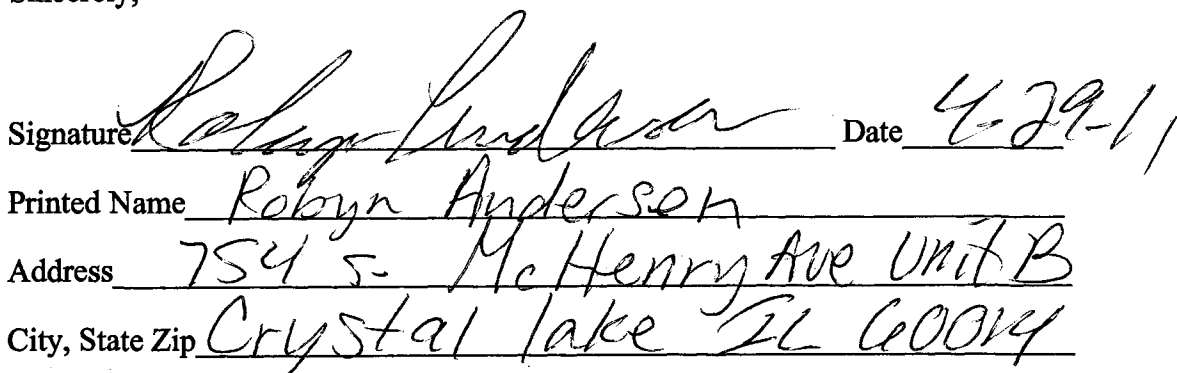 Sincerely,
Signature Robyn Anderson Date 4-29-11
Printed Name Robyn Anderson
Address 754 S. McHenry Ave Unit B
City, State Zip Crystal lake IL 60014